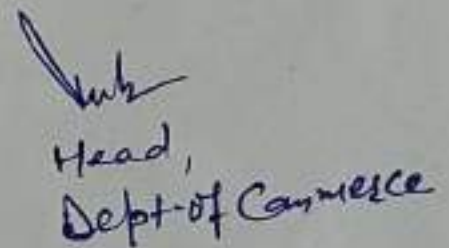 Head,
Dept-of Commerce